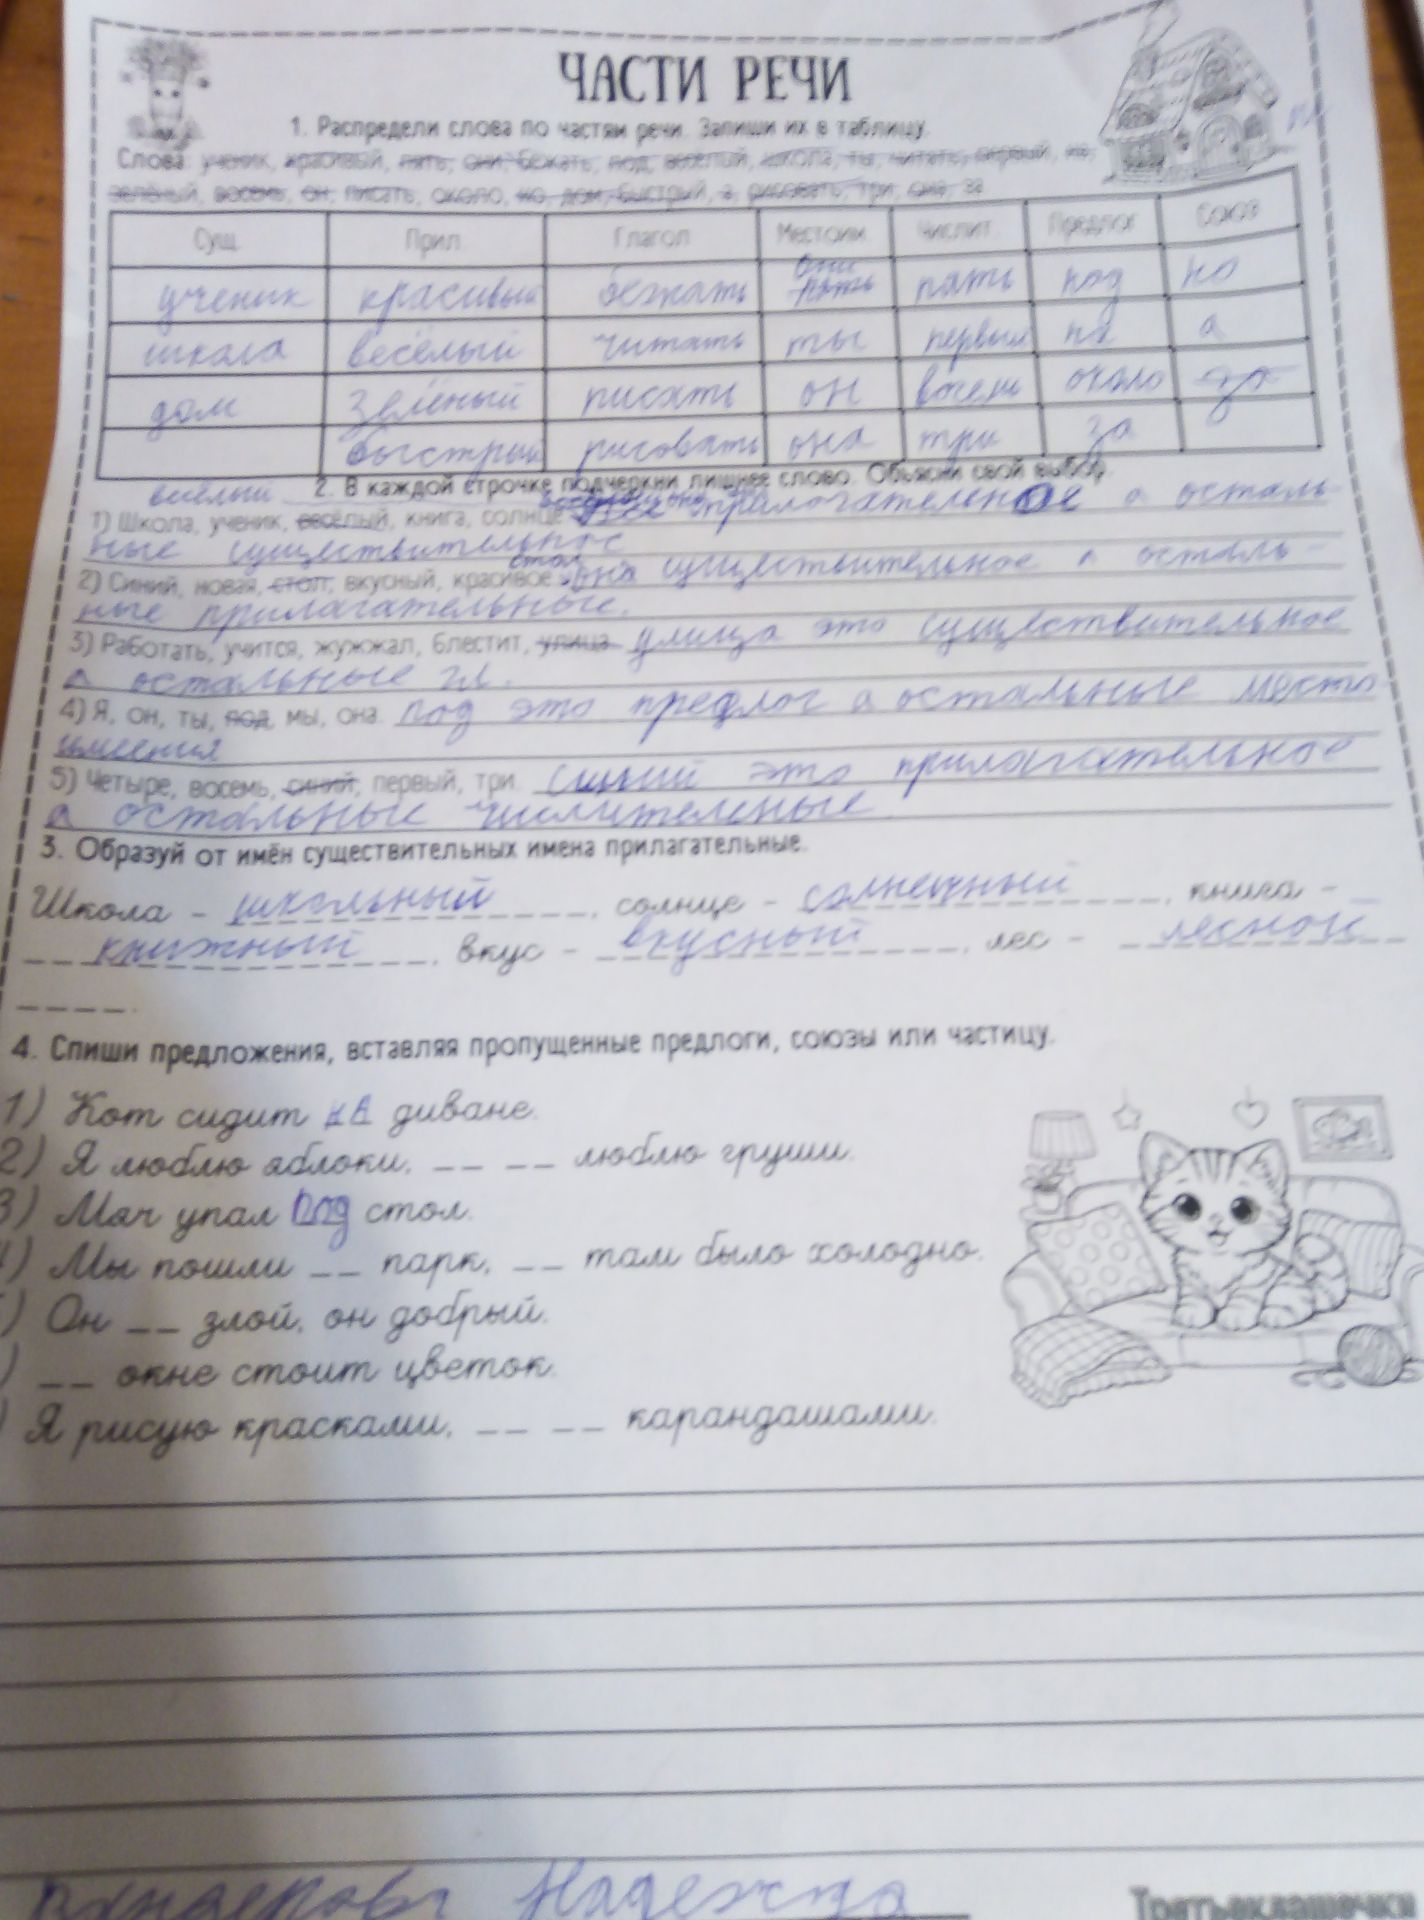 ЧАСТИ РЕЧИ
1. Распредели слова по частям речи. Запиши их в таблицу.
Слова: ученик, красивый, пять, они, бежать, под, весёлый, школа, ты, читать, первый, на,
зелёный, восемь, он, писать, около, но, дом, быстрый, а, рисовать, три, она, за
Сущ. Прил. Глагол Местоим. Числит. Предлог Союз
они
ученик красивый бежать пять пять под но
школа весёлый читать ты первый на а
дом зелёный писать он восемь около за
быстрый рисовать она три за
2. В каждой строчке подчеркни лишнее слово. Объясни свой выбор.
весёлый
1) Школа, ученик, весёлый, книга, солнце прилагательное а осталь-
ные существительнос
стол
2) Синий, новая, стол, вкусный, красивое. она существительное а осталь-
ные прилагательные.
3) Работать, учится, жужжал, блестит, улица. улица это существительное
а остальные гл.
4) Я, он, ты, под, мы, она. под это предлог а остальные место
имения
5) Четыре, восемь, синий, первый, три. синий это прилагательное
а остальные числителеные.
3. Образуй от имён существительных имена прилагательные.
Школа - школьный, солнце - солнечный, книга -
книжный, вкус - вкусный, лес - лесной
4. Спиши предложения, вставляя пропущенные предлоги, союзы или частицу.
1) Кот сидит на диване.
2) Я люблю яблоки, __ __ люблю груши.
3) Мяч упал под стол.
) Мы пошли __ парк, __ там было холодно.
) Он __ злой, он добрый.
) __ окне стоит цветок.
Я рисую красками, __ __ карандашами.
Надежда
Третьеклашечки